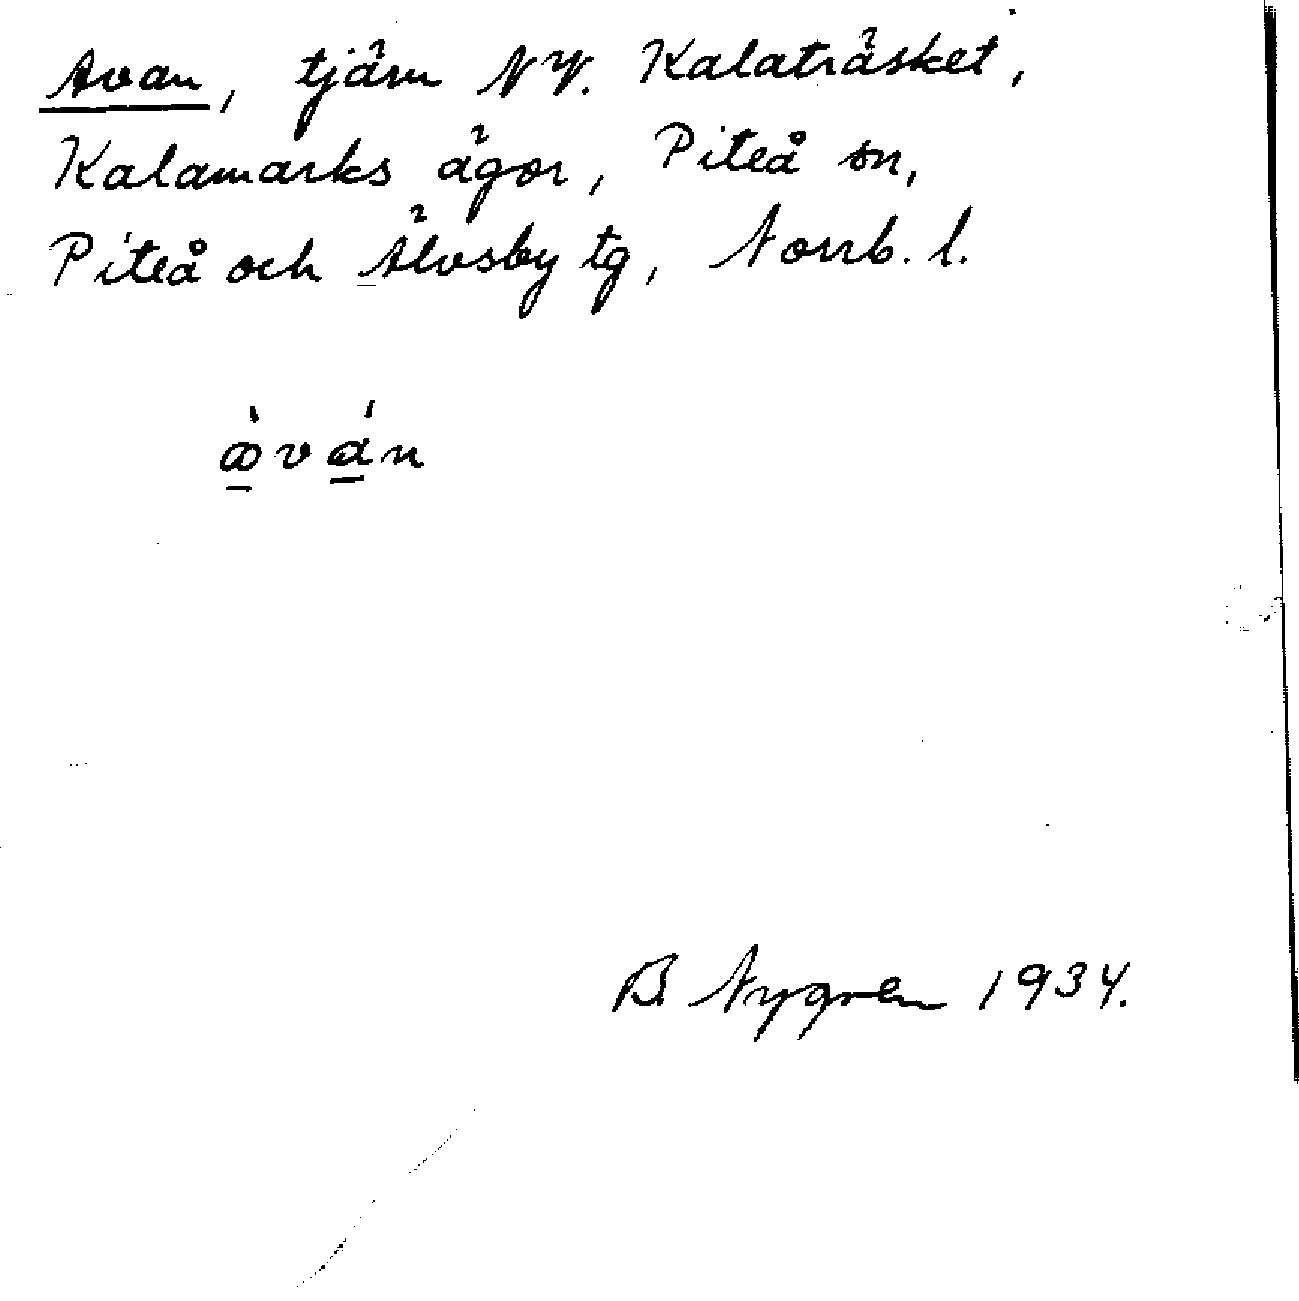 Avan, tjärn NV. Kalaträsket,
Kalamarks ägor, Piteå sn,
Piteå och Älvsby tg, Norrb. l.
B Nygren 1934.